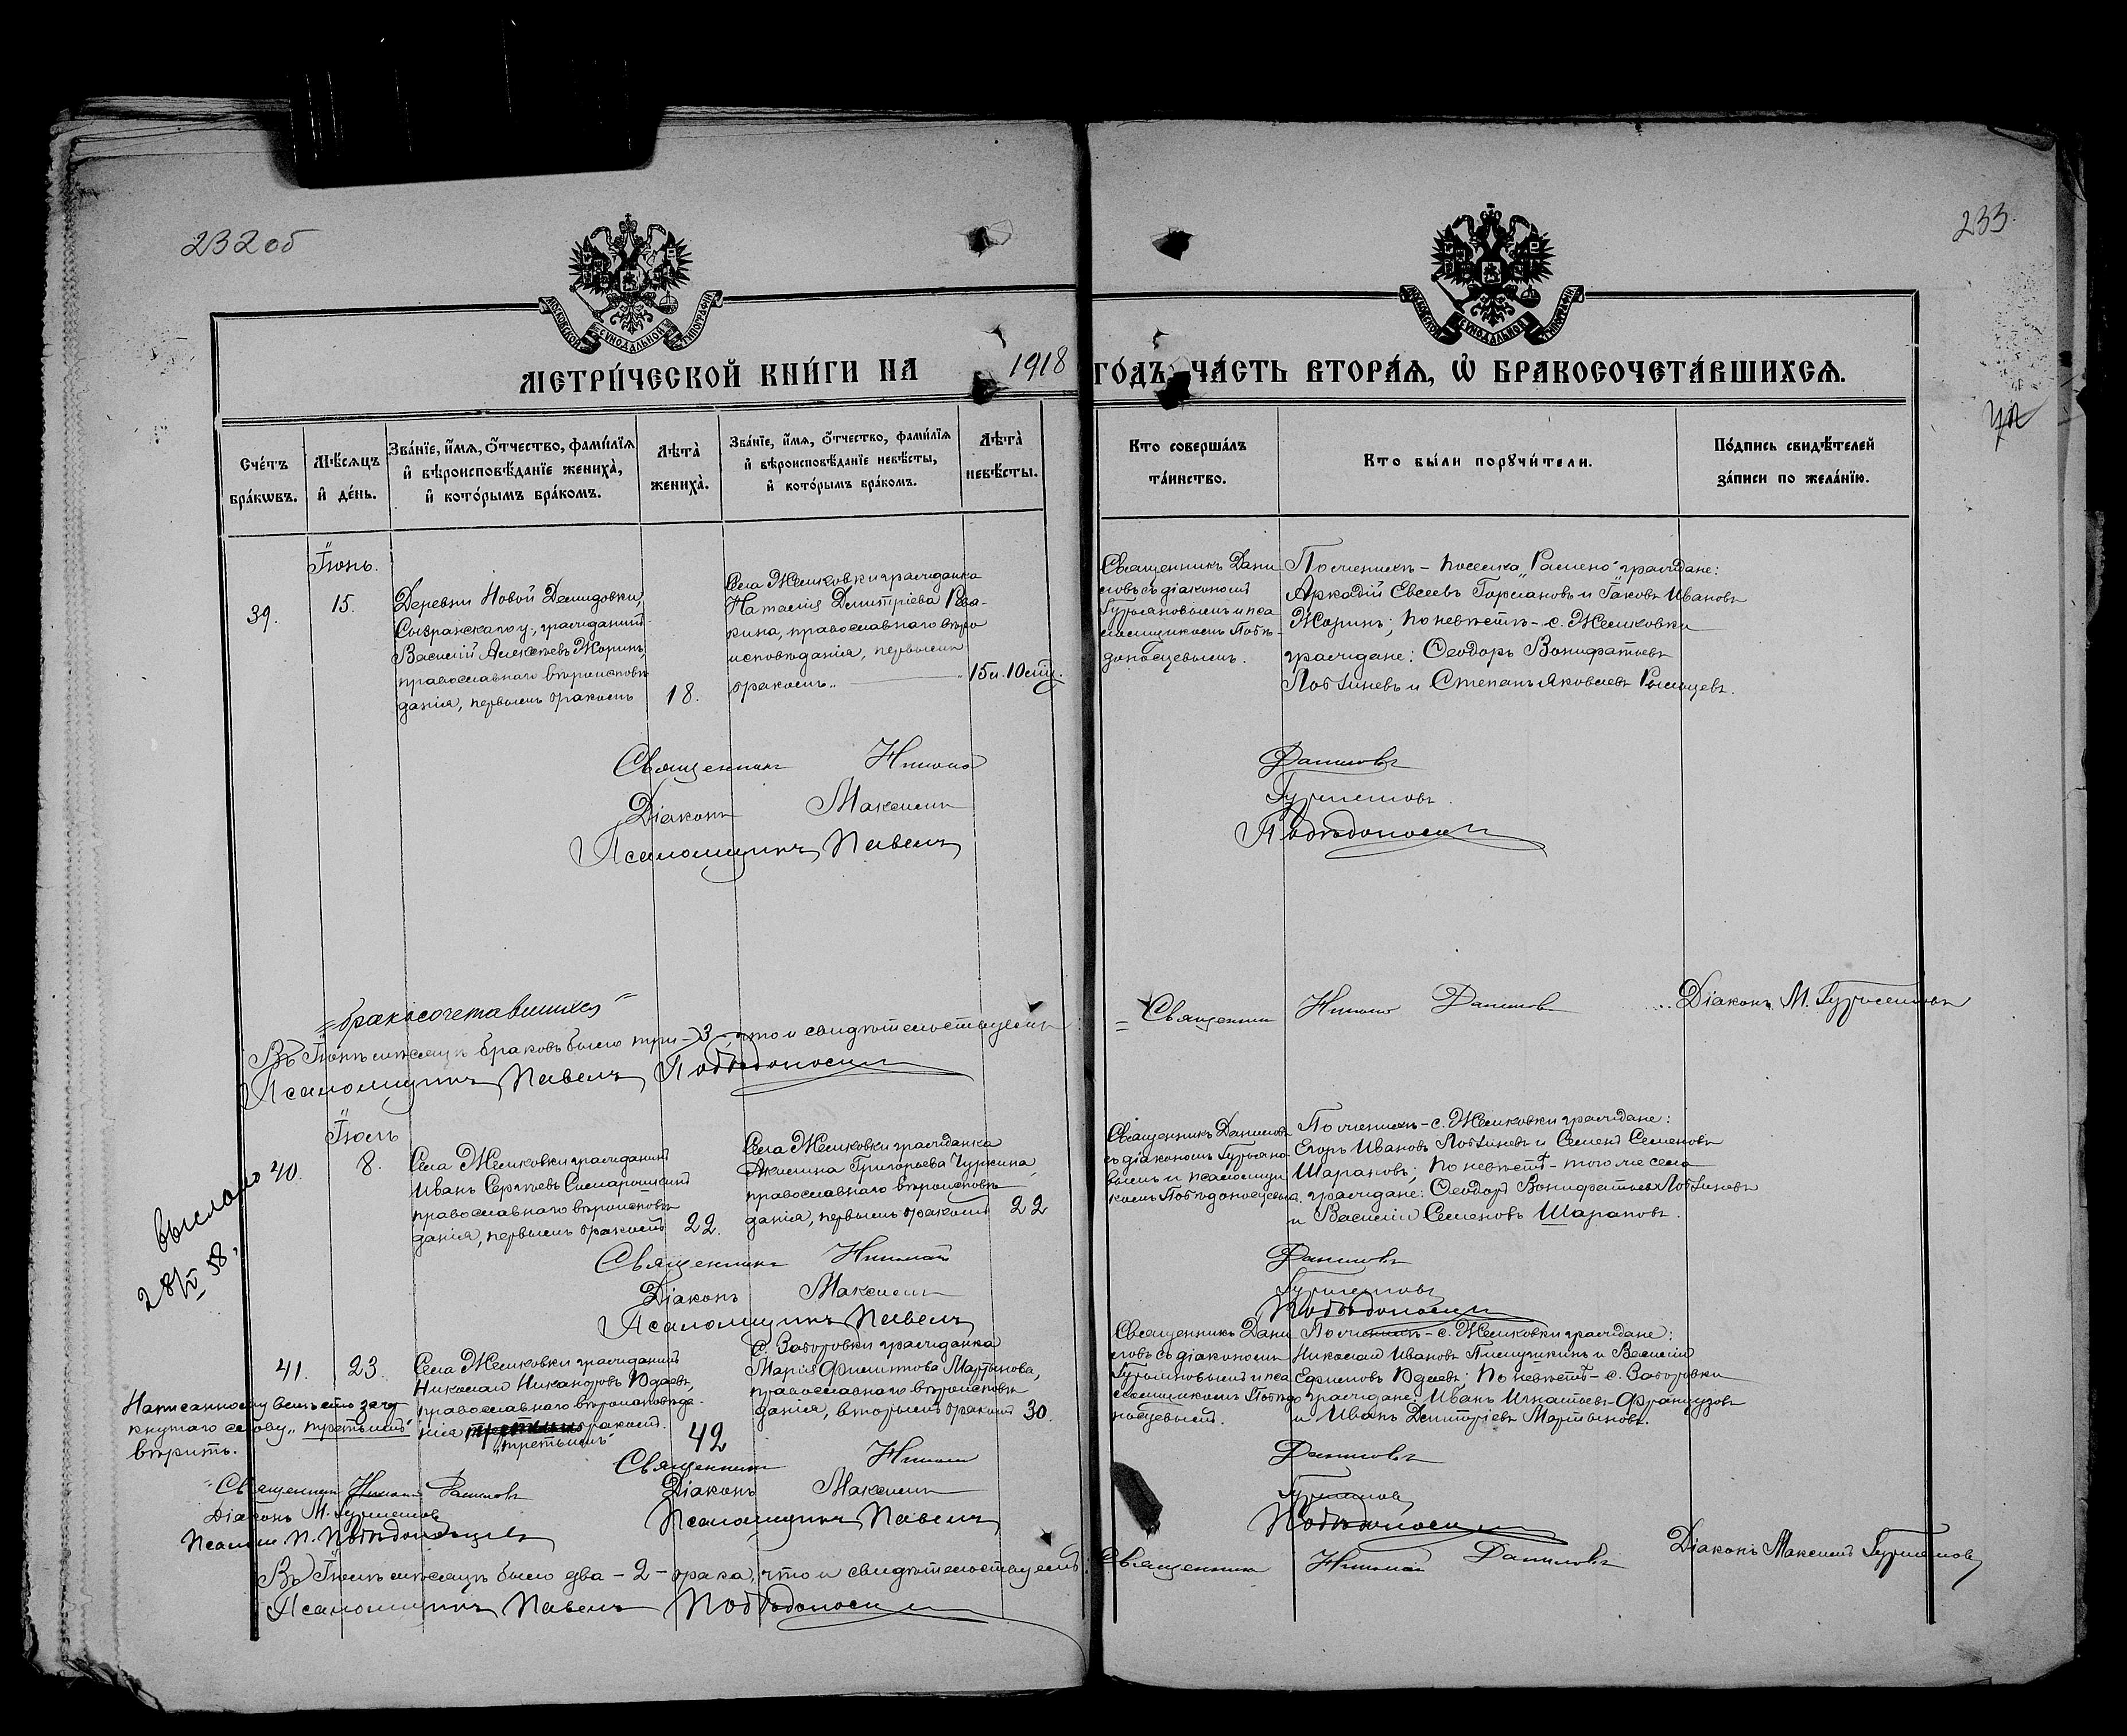 232 об
233.
МОСКОВСКОЙ СѴНОДАЛЬНОЙ ТИПОГРАФІИ
МОСКОВСКОЙ СѴНОДАЛЬНОЙ ТИПОГРАФІИ
МЕТРИ́ЧЕСКОЙ КНИ́ГИ НА 1918 ГО́ДЪ, ЧА́СТЬ ВТОРА́Ѧ, Ѡ҆ БРАКОСОЧЕТА́ВШИХСѦ.
Сче́тъ бра́кѡвъ.
Мѣ́сяцъ и҆ де́нь.
Зва́нїе, и҆́мѧ, ѻ҆́тчество, фами́лїѧ
и҆ вѣроисповѣ́данїе жениха̀,
и҆ кото́рымъ бра́комъ.
Лѣта̀ жениха̀.
Зва́нїе, и҆́мѧ, ѻ҆́тчество, фами́лїѧ
и҆ вѣроисповѣ́данїе невѣ́сты,
и҆ кото́рымъ бра́комъ.
Лѣта̀ невѣ́сты.
Кто соверша́лъ та́инство.
Кто бы́ли порꙋчи́тели.
По́дпись свидѣ́телей за́писи по жела́нїю.
39.
Іюнь.
15.
Деревни Новой Демидовки,
Сызранскаго у., гражданинъ
Василій Алексѣевъ Жоринъ,
православнаго вѣроисповѣ
данія, первымъ бракомъ
18.
Села Жемковки гражданка
Наталія Димитріева
православнаго вѣро
исповѣданія, первымъ
бракомъ.
15 л. 10 мѣц.
Священникъ Дани
ловъ съ діакономъ
Гурьяновымъ и пса
ломщикомъ Побѣ-
доносцевымъ.
По женихѣ - поселка „Рамено" граждане:
Аркадій Евсеевъ и Іаковъ Ивановъ
Жоринъ; по невѣстѣ - с. Жемковки
граждане: Ѳеодоръ Вонифатьевъ
и Степанъ Яковлевъ
Священникъ Николай Даниловъ
Діаконъ Максимъ Гурьяновъ.
Псаломщикъ Павелъ Побѣдоносцевъ
=бракосочетавшихся=
Въ Іюнѣ мѣсяцѣ браковъ было три - 3, что и свидѣтельствуемъ:
= Священникъ Николай Даниловъ Діаконъ М. Гурьяновъ
Псаломщикъ Павелъ Побѣдоносцевъ
выслано
28/V 58.
40.
Іюль
8.
Села Жемковки гражданинъ
Иванъ Сергѣевъ
православнаго вѣроисповѣ
данія, первымъ бракомъ
22.
Села Жемковки гражданка
Акилина Григорьева Чуркина,
православнаго вѣроисповѣ
данія, первымъ бракомъ
22
Священникъ Даниловъ
съ діакономъ Гурьяно
вымъ и псаломщи
комъ Побѣдоносцевымъ.
По женихѣ - с. Жемковки граждане:
Егоръ Ивановъ и Семенъ Семеновъ
Шараповъ; по невѣстѣ - того же села
граждане: Ѳеодоръ Вонифатьевъ
и Василій Семеновъ Шараповъ.
Священникъ Николай Даниловъ
Діаконъ Максимъ Гурьяновъ
Псаломщикъ Павелъ Побѣдоносцевъ
41.
23.
Села Жемковки гражданинъ
Николай Никаноровъ Юдаевъ,
православнаго вѣроисповѣда-
нія бракомъ.
„третьимъ"
42
с. Заборовки гражданка
Марія Филиппова Мартынова,
православнаго вѣроисповѣ
данія, вторымъ бракомъ
30.
Священникъ Дани
ловъ съ діакономъ
Гурьяновымъ и пса
ломщикомъ Побѣдо
носцевымъ.
По женихѣ - с. Жемковки граждане:
Николай Ивановъ и Василій
Ефимовъ Юдаевъ; по невѣстѣ - с. Заборовки
граждане: Иванъ Игнатьевъ Французовъ
и Иванъ Димитріевъ Мартыновъ.
Написанному вмѣсто заче
ркнутаго слову „третьимъ"
вѣрить.
Священникъ Николай Даниловъ
Діаконъ М. Гурьяновъ
Псаломщ. П. Побѣдоносцевъ
Священникъ Николай Даниловъ
Діаконъ Максимъ Гурьяновъ
Псаломщикъ Павелъ Побѣдоносцевъ
Въ Іюлѣ мѣсяцѣ было два - 2 - брака, что и свидѣтельствуемъ:
Священникъ Николай Даниловъ Діаконъ Максимъ Гурьяновъ
Псаломщикъ Павелъ Побѣдоносцевъ